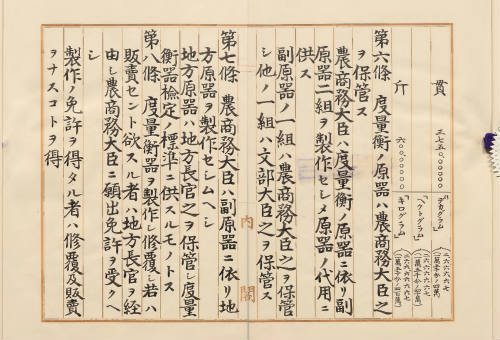 貫
三七五〇.〇〇〇〇〇〇
「デカグラム」
斤
六〇〇.〇〇〇〇〇〇
「ヘクトグラム」
「キログラム」
第六條 度量衡ノ原器ハ農商務大臣之
ヲ保管ス
農商務大臣ハ度量衡ノ原器ニ依リ副
原器二組ヲ製作セシメ原器ノ代用ニ
供ス
副原器ノ一組ハ農商務大臣之ヲ保管
シ他ノ一組ハ文部大臣之ヲ保管ス
内閣
第七條 農商務大臣ハ副原器ニ依リ地
方原器ヲ製作セシムヘシ
地方原器ハ地方長官之ヲ保管シ度量
衡器檢定ノ標準ニ供スルモノトス
第八條 度量衡器ヲ製作シ修覆シ若ハ
販賣セント欲スル者ハ地方長官ヲ經
由シ農商務大臣ニ願出免許ヲ受クヘ
シ
製作ノ免許ヲ得タル者ハ修覆及販賣
ヲナスコトヲ得